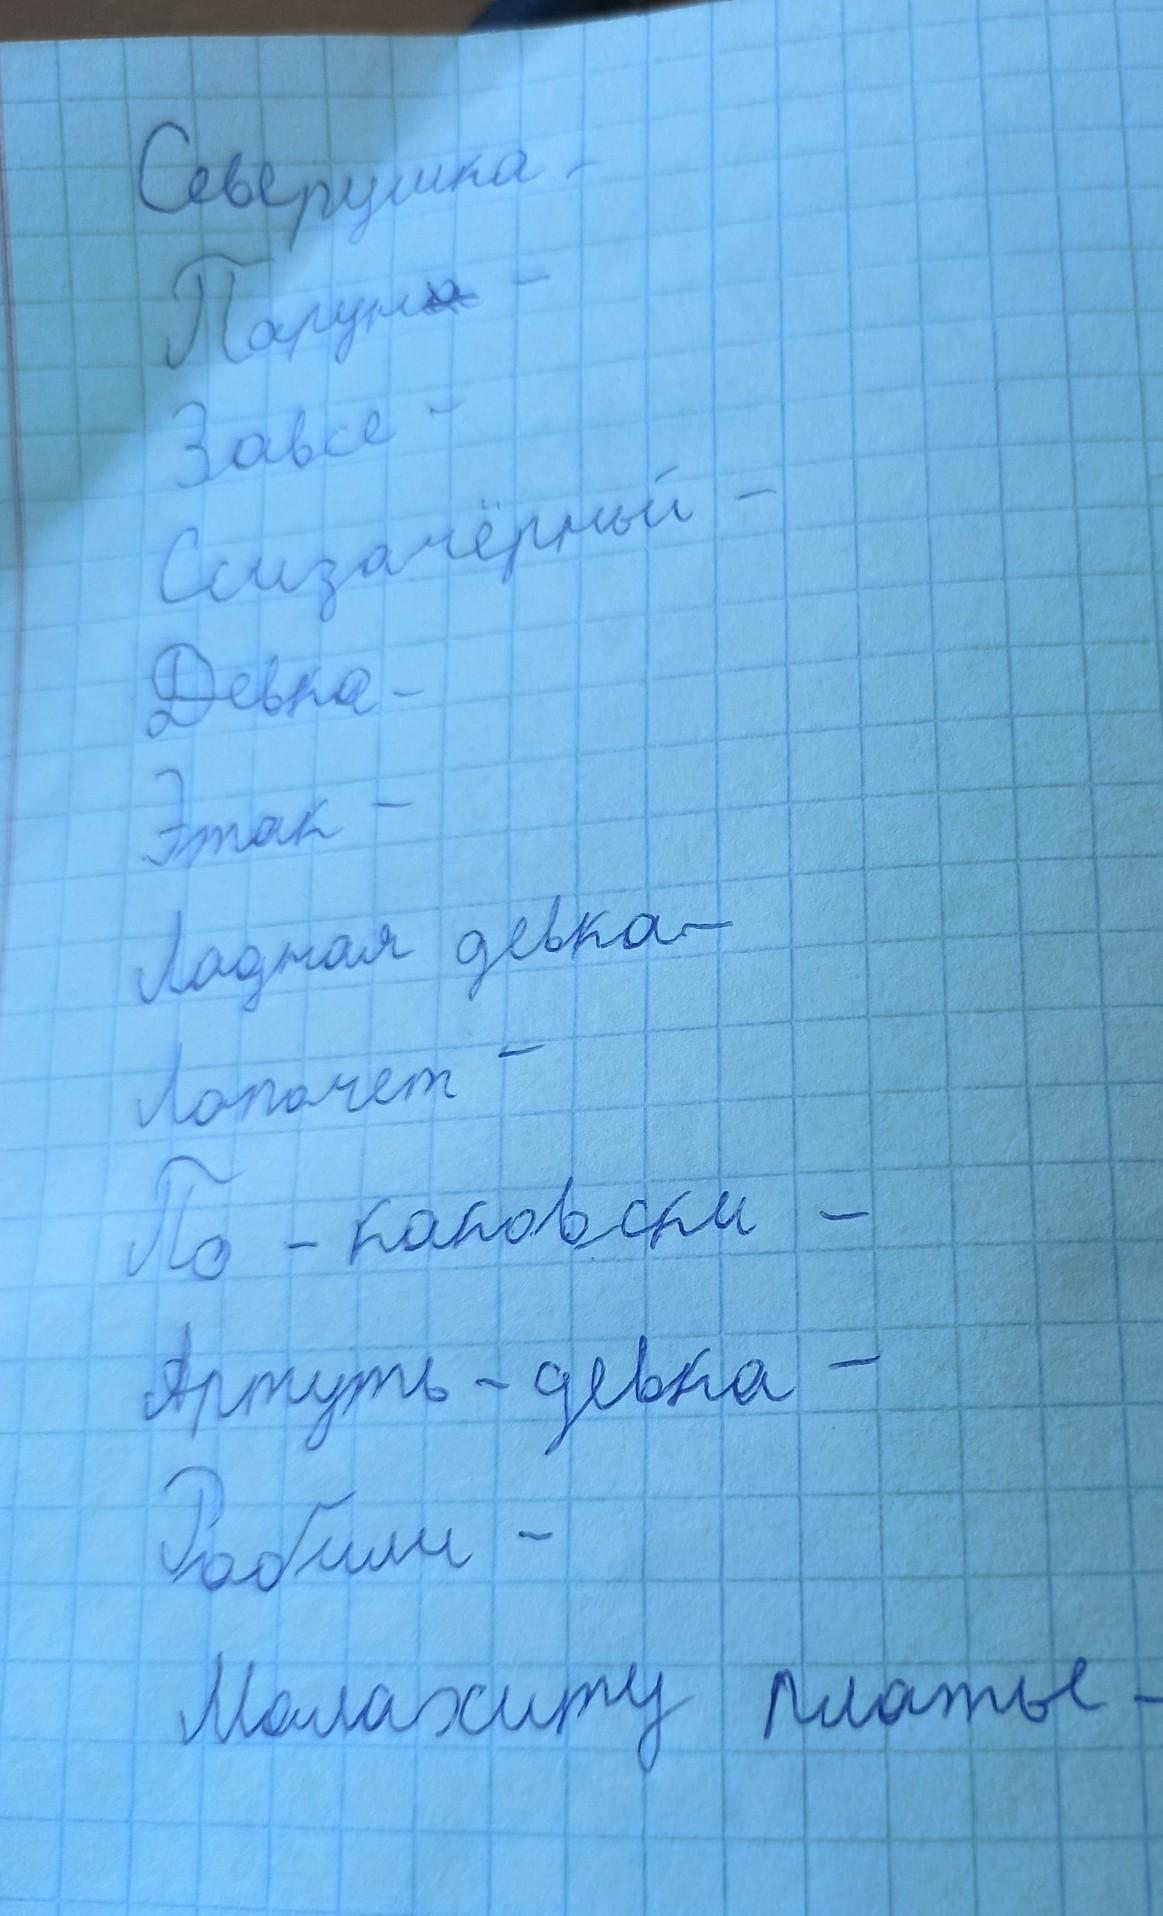 Северушка -
Парун -
Завсе -
Ссиза чёрный -
Девка -
Этак -
Ладная девка -
Лопочет -
По - каковски -
Артуть - девка -
Робили -
Малахиту платье -